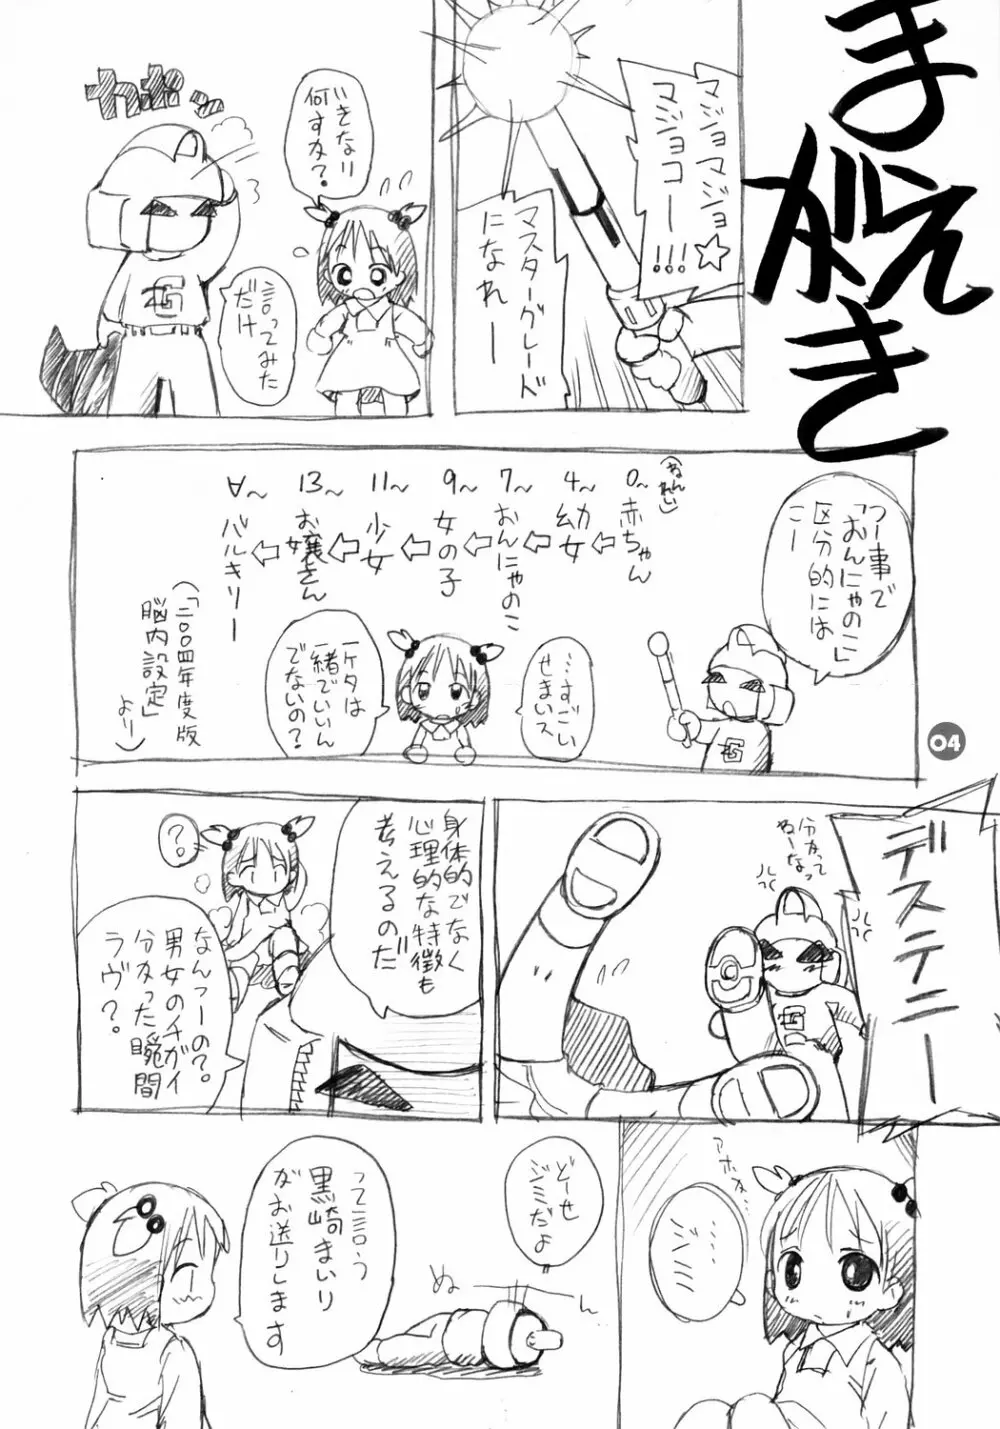 まがえき
マジョマジョ☆
マジョコー!!!
マスターグレード
になれー
いきなり
何すか?
カポーン
言ってみた
だけ
つー事で
「おんにゃのこ」
区分的には
こー
(ねんれい)
0~赤ちゃん
4~幼女
7~おんにゃのこ
9~女の子
11~少女
13~お嬢さん
∀~バルキリー
(「二〇〇四年度版
脳内設定」
より)
…すごい
せまいス
一ケタは
一緒でいいん
でないの?
04
デステニー
分かって
ねーなっ
身体的でなく
心理的な特徴も
考えるのだ
?
なんつーの?
男女のチガイ
分かった瞬間
ラヴ?
アホか…
ジミ
どーせ
ジミだよ
ぬーん
って言う
黒崎まいり
がお送りします